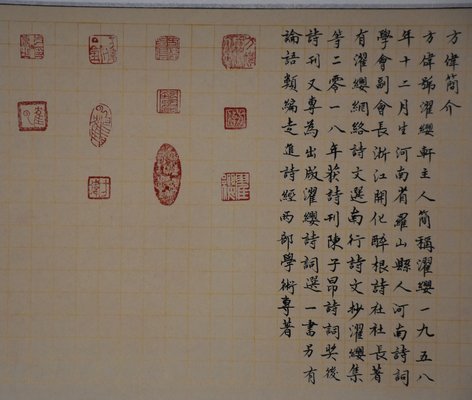 方偉簡介
方偉號濯纓軒主人簡稱濯纓一九五八
年十二月生河南省羅山縣人河南詩詞
學會副會長浙江開化醉根詩社社長著
有濯纓網絡詩文選南行詩文抄濯纓集
等二零一八年获詩刊陳子昂詩詞奖後
詩刊又專為出版濯纓詩詞選一書另有
論語類編走進詩經兩部學術專著